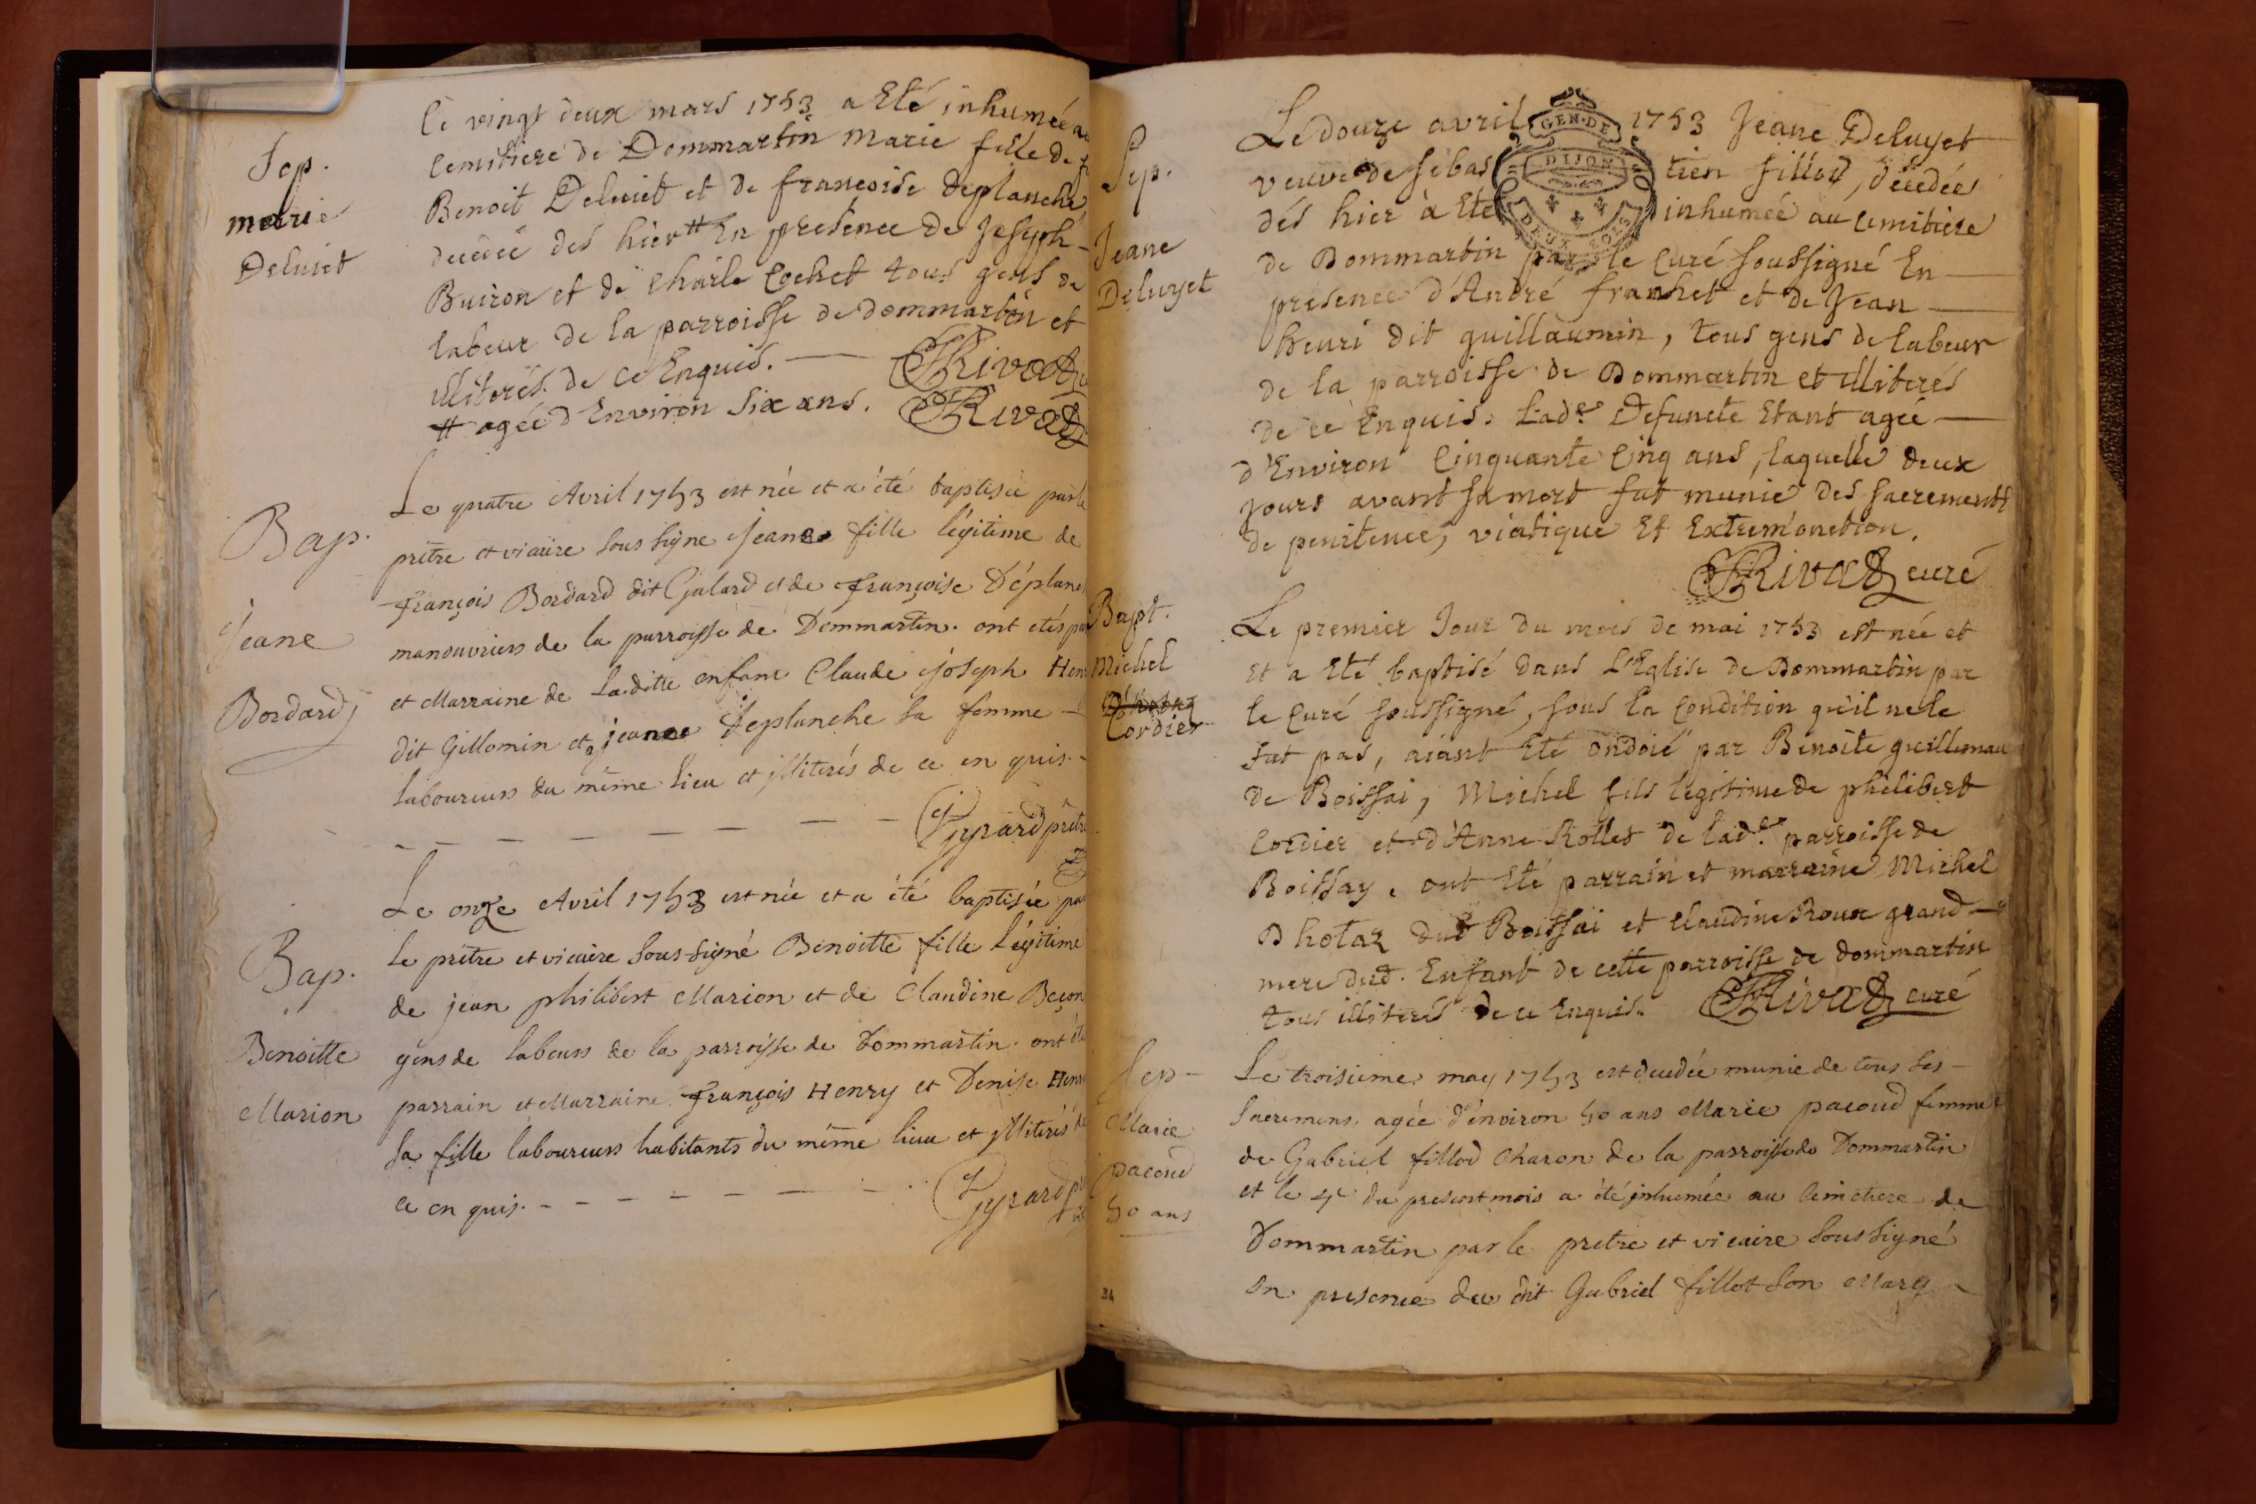 Sep.
marie
Deluiet
Le vingt deux mars 1753 a Eté inhumée au
Cemitiere de Dommartin marie fille de
Benoit Deluiet et de francoise deplanche
decedée des hier # En presence de Joseph
Buiron et de Charle Cochet tous gens de
labeur de la parroisse de dommartin et
illiterés de ce Enquis. — JRivod
# agée d'Environ Six ans. JRivod
Bap.
Jeane
Bordard
Le quatre Avril 1753 est née et a été baptisée par le
prêtre et viciaire sous signé Jeane fille légitime de
François Bordard dit Galard et de Françoise Déplan
manouvriers de la parroisse de Dommartin. ont etés pa
et Marraine de laditte enfant Claude Joseph Hen
dit Gillomin et jeanne Deplanche sa femme —
laboureurs du même lieu et illiterés de ce en quis.
Gyrard prêtre
Bap.
Benoitte
Marion
Le onze Avril 1753 est née et a été baptisée pa
le prêtre et vicaire sous-signé Benoitte fille légitime
de jean philibert Marion et de Claudine Beçon
gens de labeurs de la parroisse de Dommartin. ont été
parrain et Marraine François Henry et Denise Henr
sa fille laboureurs habitants du même lieu et illiterés de
ce en quis. - - - - - - Gyrard
Sep.
Jeane
Deluyet
Le douze avril 1753 Jeane Deluyet
GEN. DE
DIJON
DEUX SOLS
veuve de sebastien fillod, décedée
dés hier à Eté inhumée au cemitiere
de Dommartin par le Curé soussigné En
presence d'André franhet et de Jean
henri dit guillaumin, tous gens de labeur
de la parroisse de Dommartin et illiterés
de ce Enquis. Lad.e Defuncte Etant agée
d'Environ Cinquante Cinq ans, laquelle deux
jours avant sa mort fut munie des sacrements
de penitence, viatique Et Extremonction.
JRivod curé
Bapt.
Michel
Cordier
Le premier Jour du mois de mai 1753 est née et
et a Eté baptisé dans L'Eglise de Dommartin par
le Curé soussigné, sous la Condition qu'il ne le
fut pas, aiant Eté ondoié par Benoite guillemau
de Boissai, Michel fils legitime de philibert
Cordier et d'Anne Rolles de lad.e parroisse de
Boissay. ont Eté parrain et marraine Michel
Dhotaz dud Boissai et Claudine Roux grand
mere dud. Enfant de cette parroisse de dommartin
tous illiterés de ce Enquis. JRivod curé
Sep
Marie
pacoud
50 ans
Le troisieme may 1753 est decedée munie de tous ses
sacremens. agée d'énviron 50 ans Marie pacoud femme
de Gabriel fillod Charon de la parroisse de Dommartin
et le 4e du present mois a été inhumée au Cimetiere de
Dommartin par le pretre et vicaire sous signé
en presence du dit Gabriel fillot son Mary
34